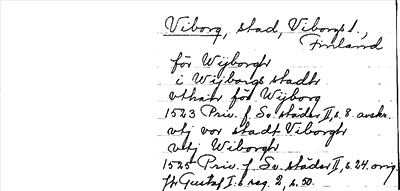 Viborg, stad, Viborgs l.,
Finland
för Wijborgh
i Wijborgs stadh
vthatr för Wijborg
1523 Priv. f. Sv. städer II, s. 8. avskr.
vtj vor stadt Viborgh
vtj Wiborgh
1525 Priv. f. Sv. städer II, s. 24. orig.
jfr Gustaf I:s reg. 2, s. 50.